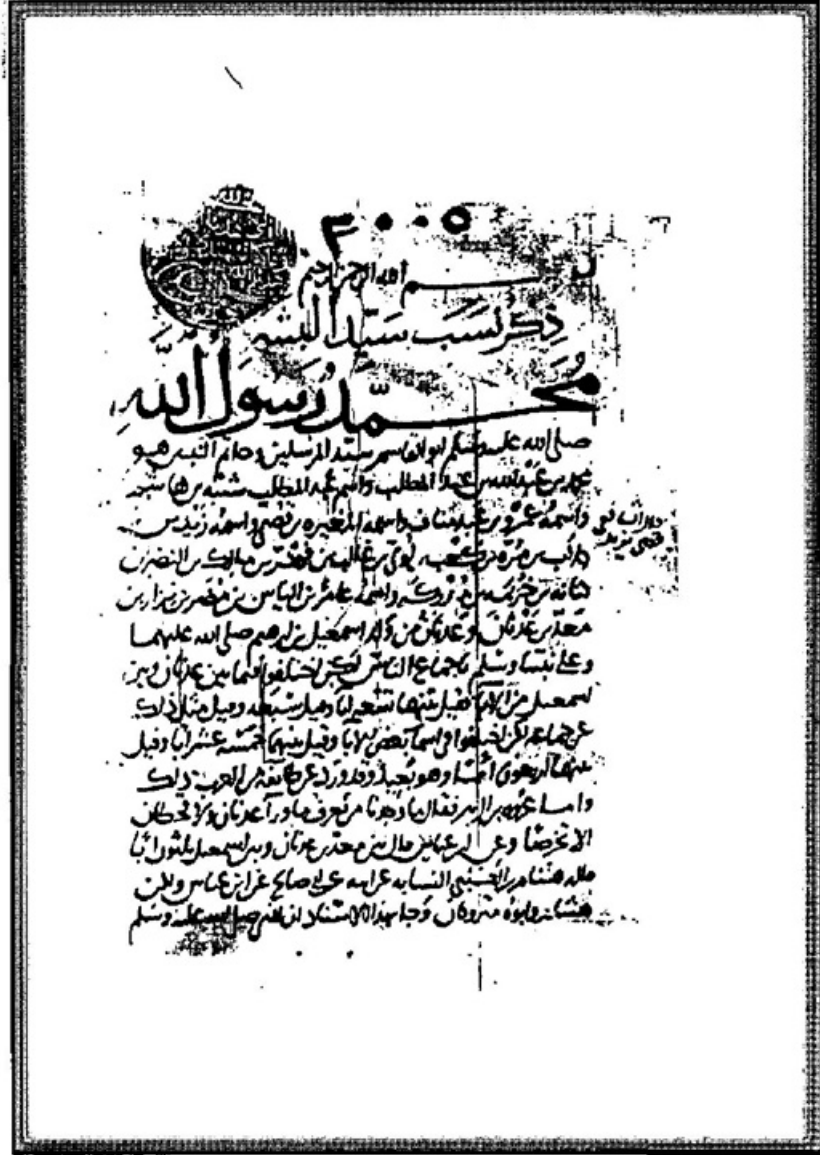 ٣٠٠٥
بسم الله الرحمن الرحيم
ذكر نسب سيد البشر
محمد رسول الله
صلى الله عليه وسلم ابو القاسم سيد المرسلين وخاتم النبيين هو
محمد بن عبد الله بن عبد المطلب واسم عبد المطلب شيبة بن هاشم
واسمه عمرو بن عبد مناف واسمه المغيره بن قصي واسمه زيد بن
كلاب بن مره بن كعب بن لؤي بن غالب بن فهر بن مالك بن النضر بن
كنانه بن خزيمه بن مدركه واسمه عامر بن الياس بن مضر بن نزار بن
معد بن عدنان وعدنان من ولد اسمعيل بن ابرهيم صلى الله عليهما
وعلى نبينا وسلم باجماع الناس لكن اختلفوا فيما بين عدنان وبين
اسمعيل من الاباء فقيل بينهما تسعه آبا وقيل سبعه وقيل مثل ذلك
عن جماعه لكن اختلفوا في اسما بعض الابا وقيل بينهما خمسه عشر ابا وقيل
بينهما اربعون ابا وهو بعيد وقد ورد عن طائفه من العرب ذلك
واما عروه بن الزبير فقال ما وجدنا من يعرف ماورآ عدنان ولا قحطان
الا تخرصا وعن ابن عباس قال بين معد بن عدنان وبين اسمعيل ثلثون ابا
قاله هشام بن الكلبي النسابه عن ابيه عن ابي صالح عن ابن عباس ولكن
هشام وابوه متروكان وجا بهذا الاسناد ان النبي صلى الله عليه وسلم